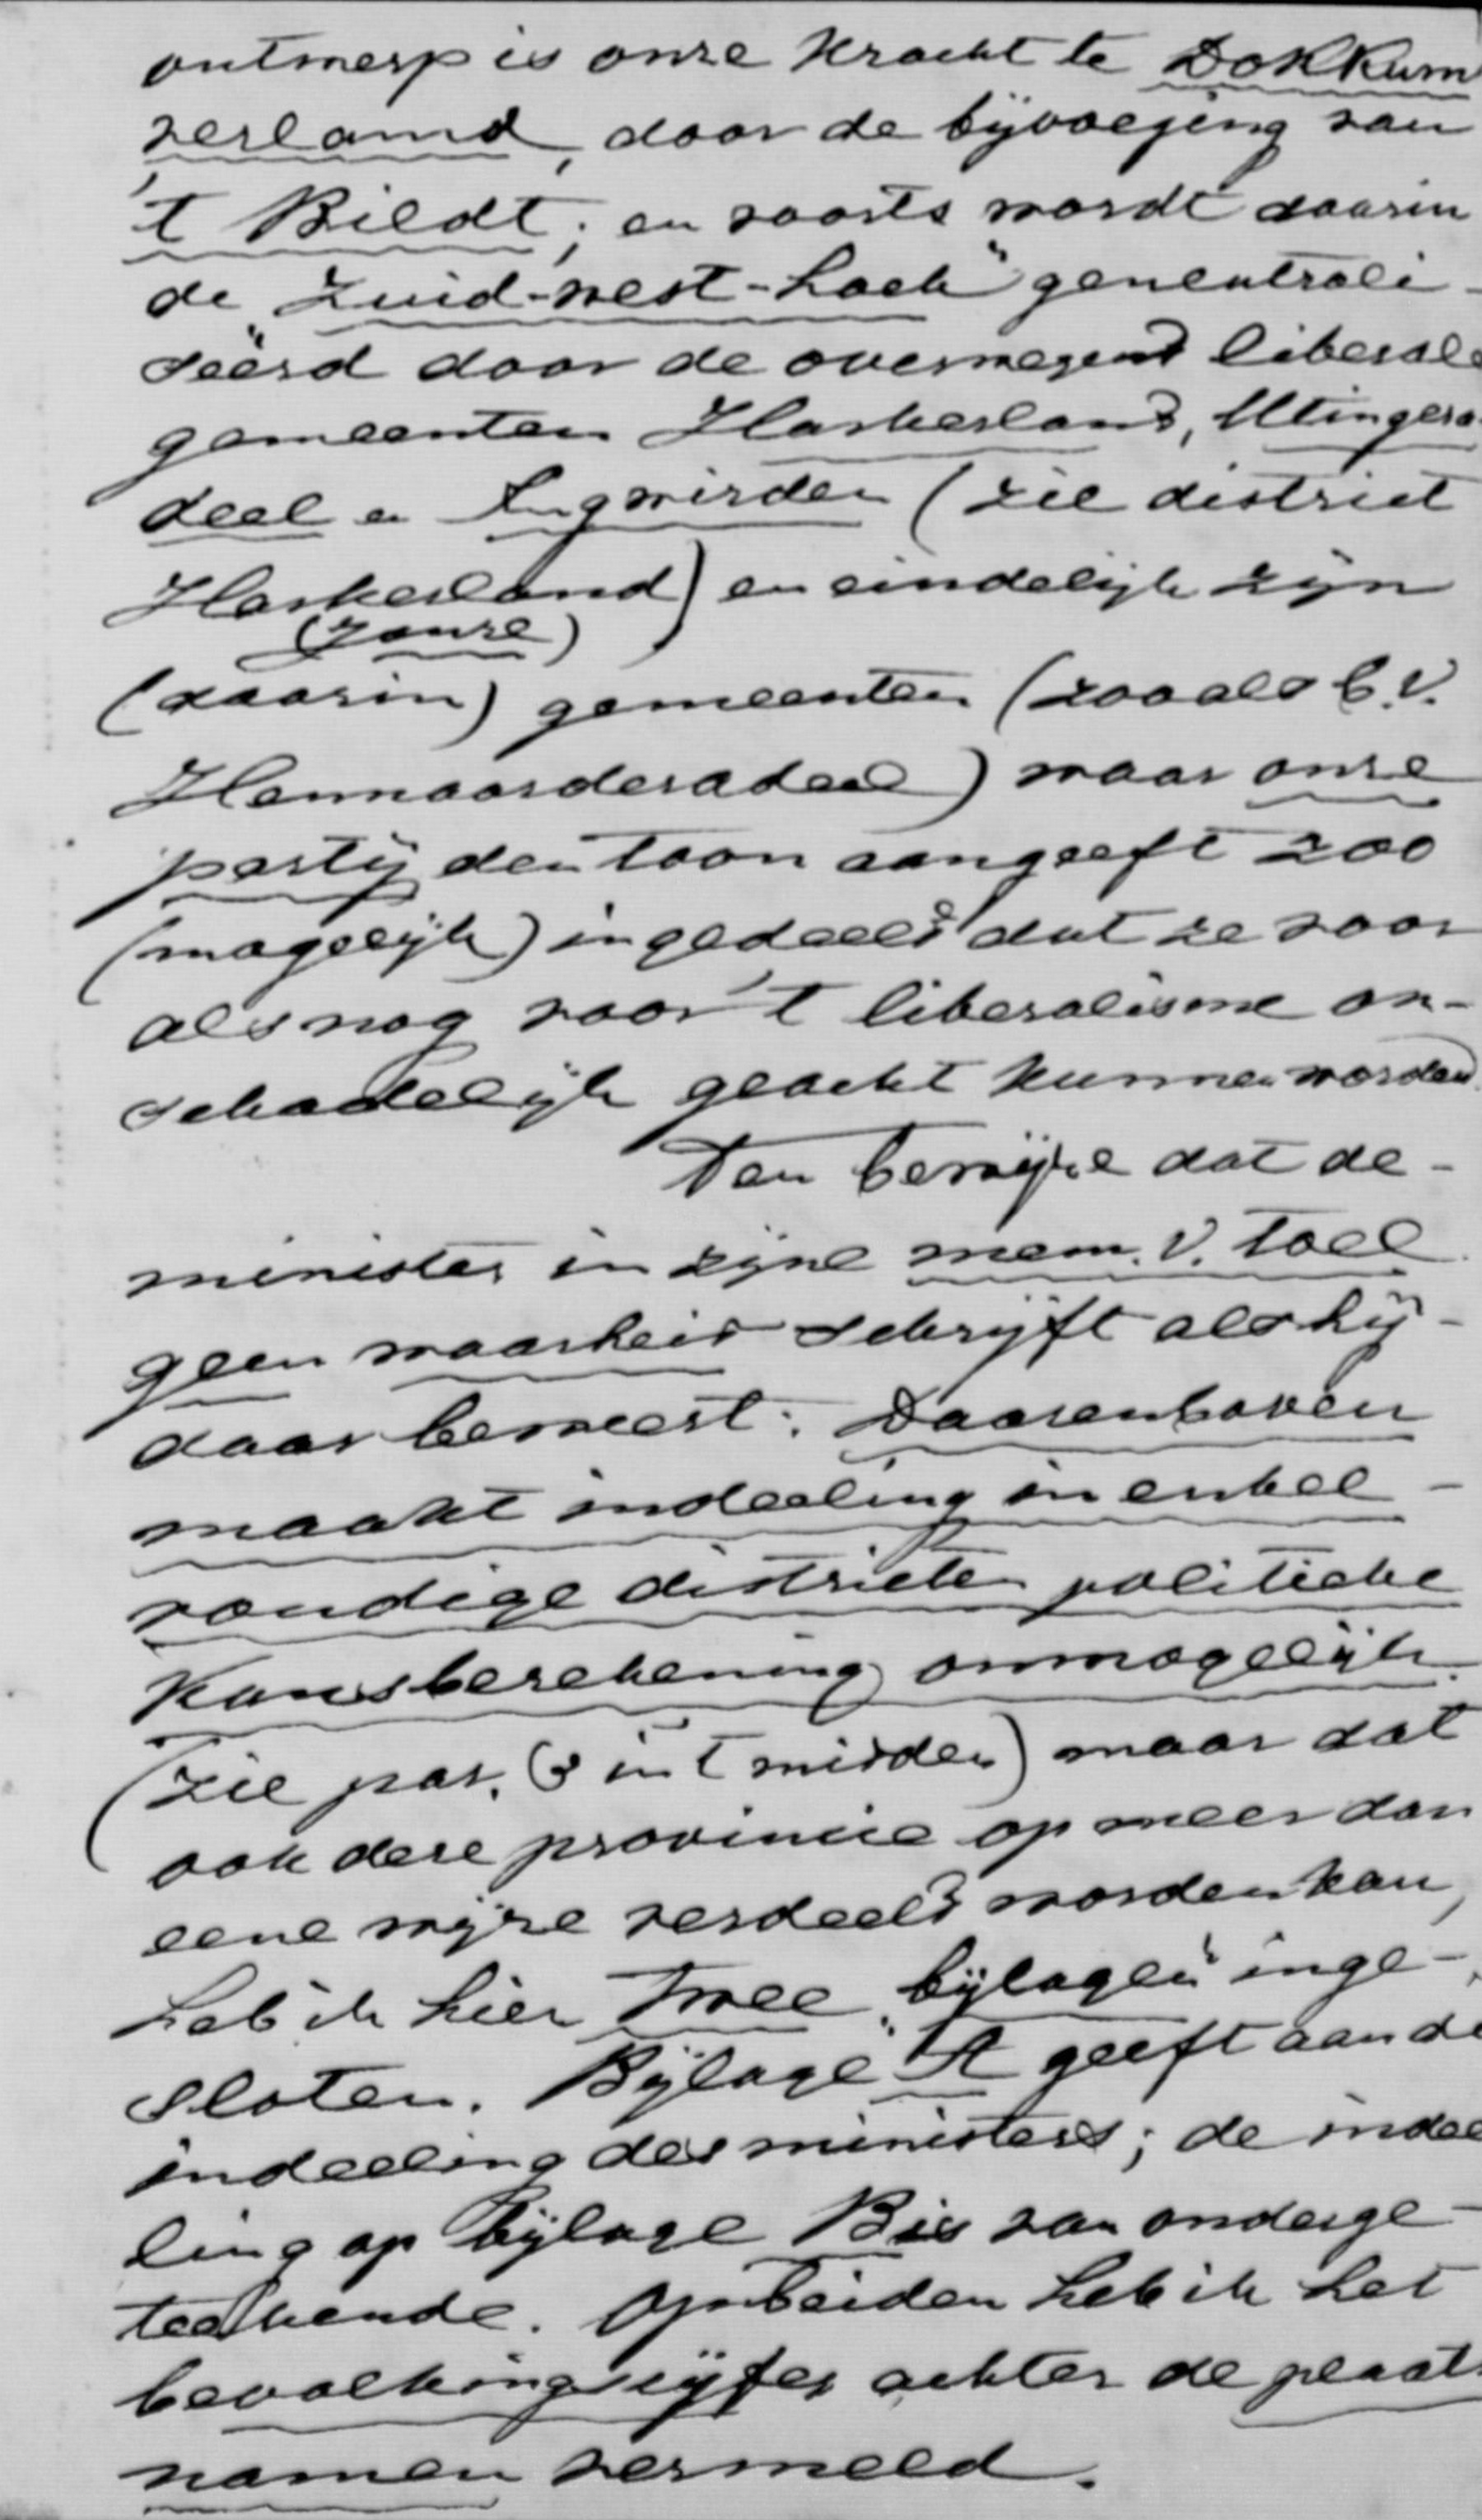 ontwerp is onze kracht te Dokkum
verlamd, door de bijvoeging van
't Bildt; en voorts wordt daarin
de "Zuid-west-hoek" geneutrali-
seerd door de overwegend liberale
gemeenten Haskerland, Utingera-
deel en Aengwirden (zie district
Haskerland) en eindelijk zijn
(ganze)
(daarin) gemeenten (zooals b.v.
Hennaarderadeel) waar onze
partij den toon aangeeft zoo
(mogelijk) ingedeeld dat ze voor
alsnog voor 't liberalisme on-
schadelijk geacht kunnen worden
Ten bewijze dat de-
minister in zijne mem. v. toel
geen waarheid schrijft als hij-
daar beweert: Daarenboven
maakt indeeling in enkel-
voudige districten politieke
kansberekening onmogelijk.
(zie par. 3 in 't midden) maar dat
ook deze provincie op meer dan
eene wijze verdeeld worden kan,
heb ik hier twee "bijlagen" inge-
sloten. Bijlage A geeft aan de
indeeling des ministers; de indee
ling op bijlage B is van onderge-
teekende. Op beiden heb ik het
bevolkingscijfer achter de plaats
namen vermeld.